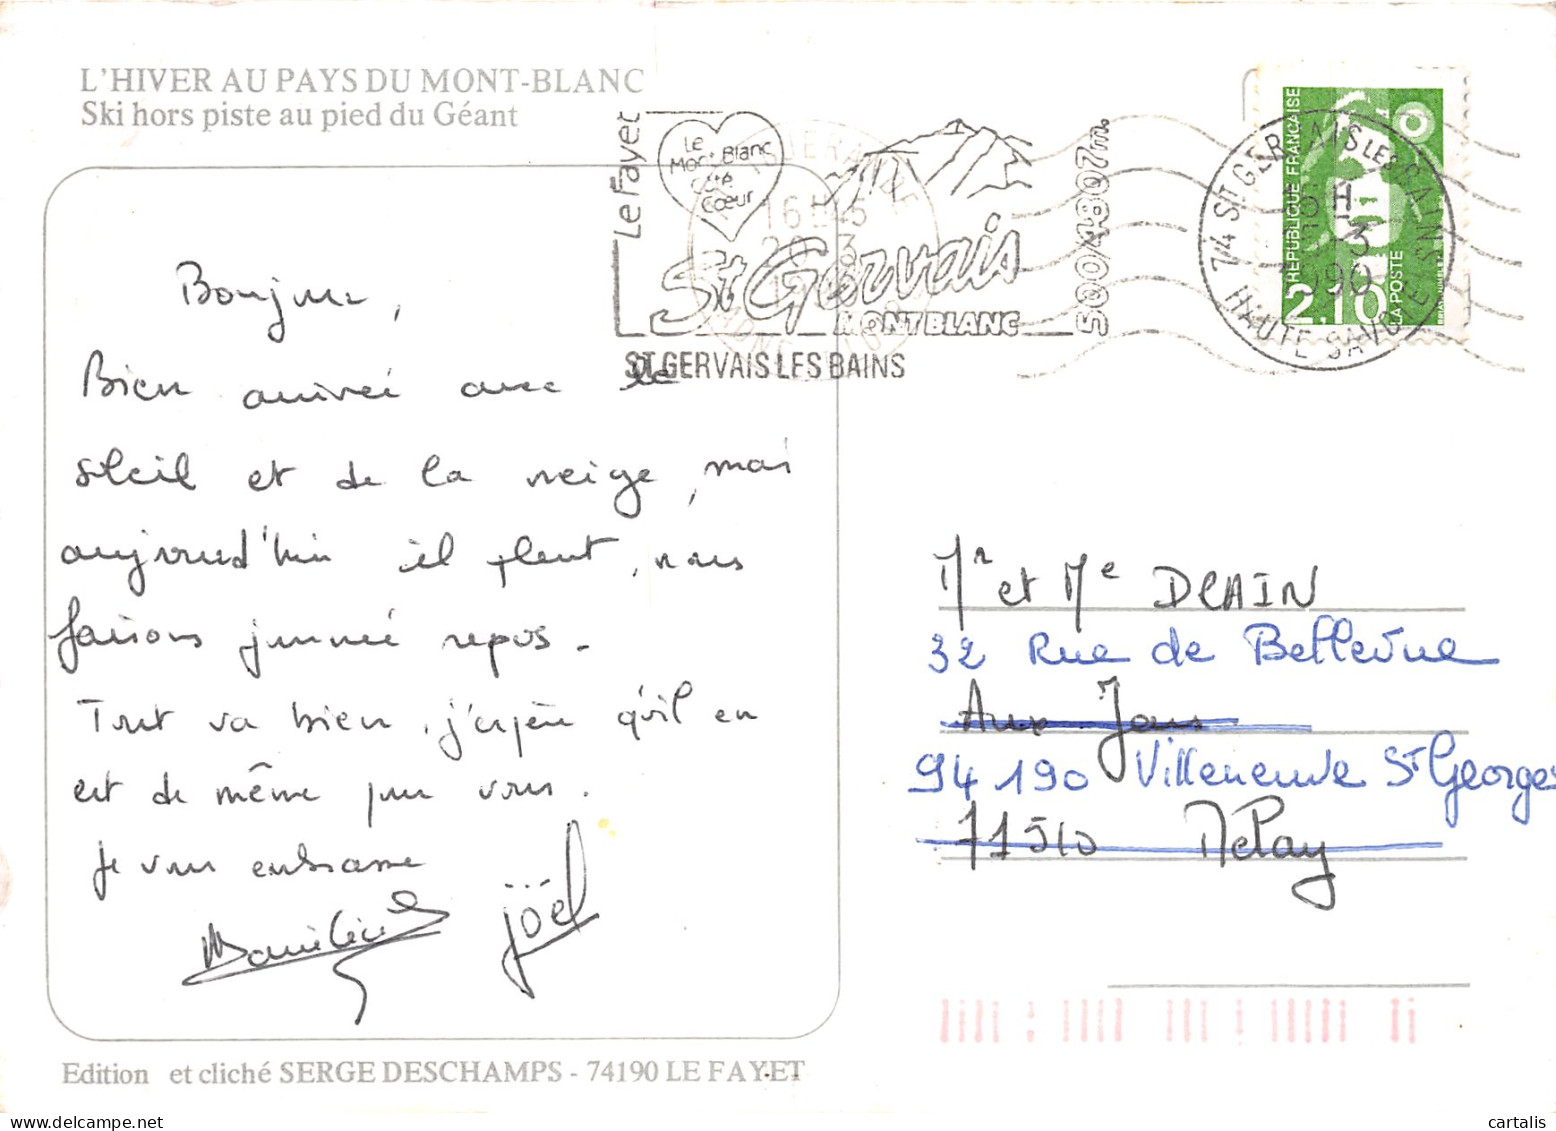 L'HIVER AU PAYS DU MONT-BLANC
Ski hors piste au pied du Géant
Le Fayet
Le
Mont Blanc
Côté
Cœur
St Gervais
MONT BLANC
500/4807m
ST GERVAIS LES BAINS
74 ST GERVAIS LES BAINS
HAUTE-SAVOIE
1990
REPUBLIQUE FRANÇAISE
2.10
LA POSTE
Bonjour,
Bien arrivé avec le
soleil et de la neige, mais
aujourd'hui il pleut, nous
faisons journée repos.
Tout va bien, j'espère qu'il en
est de même pour vous.
je vous embrasse
joël
Mr et Me DCAIN
32 Rue de Bellevue
Aux Jans
94 190 Villeneuve St Georges
71510
Edition et cliché SERGE DESCHAMPS - 74190 LE FAYET
cartalis